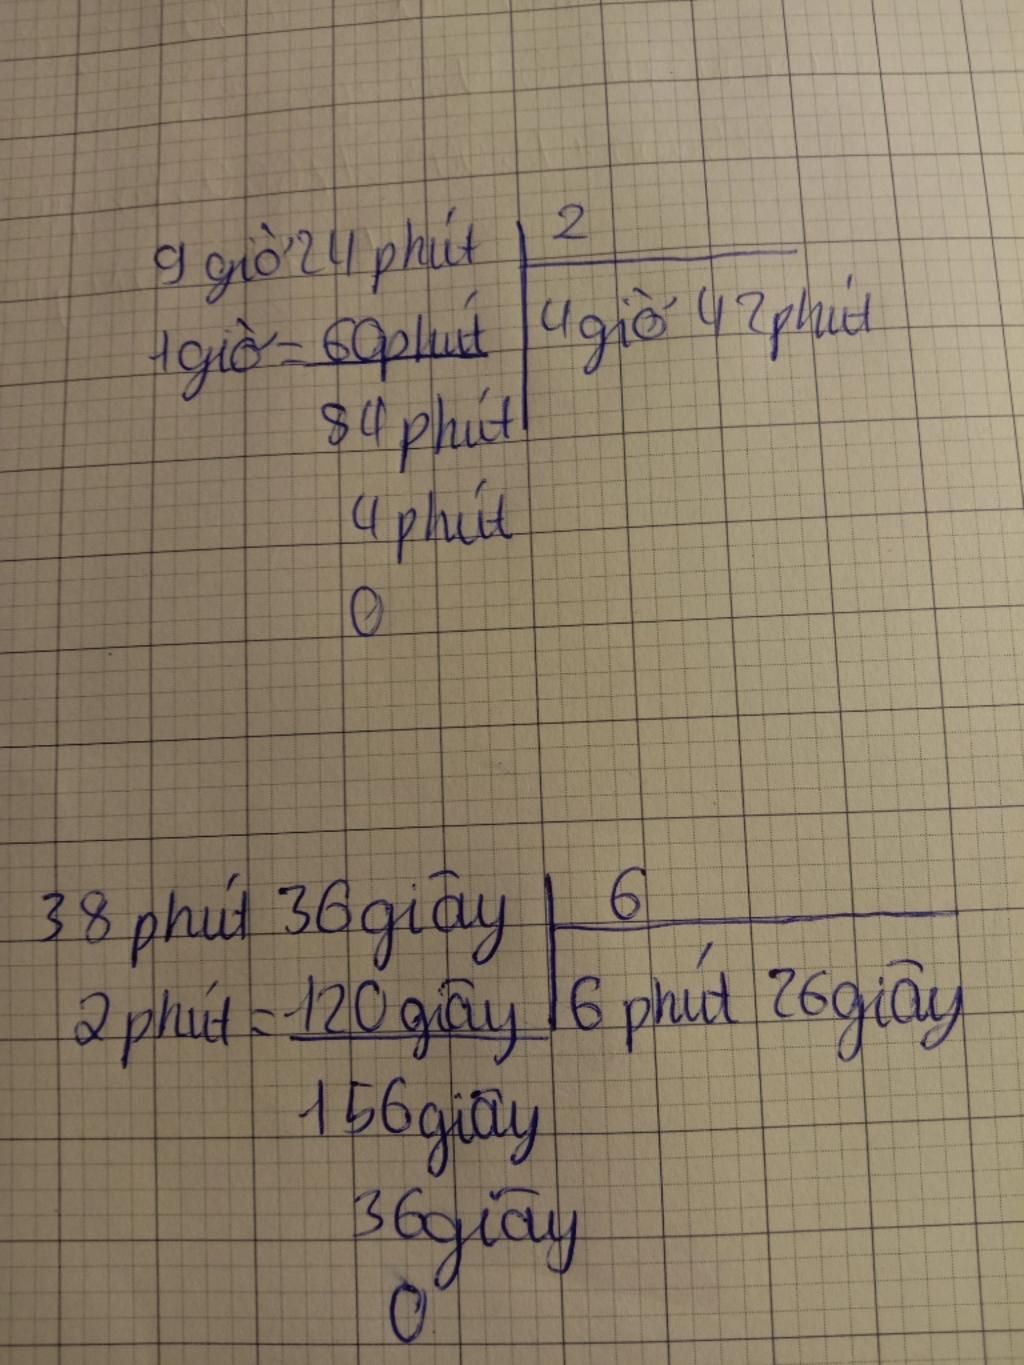 9 giờ 24 phút 2
1 giờ = 60 phút 4 giờ 42 phút
84 phút
4 phút
0
38 phút 36 giây 6
2 phút = 120 giây 6 phút 26 giây
156 giây
36 giây
0